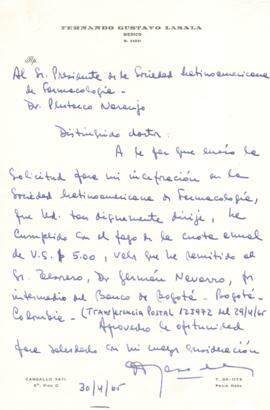 FERNANDO GUSTAVO LASALA
MEDICO
Rp.
Al Sr. Presidente de la Sociedad Latinoamericana
de Farmacología -
Dr. Plutarco Naranjo
Distinguido doctor:
A la par que envío la
solicitud para mi incorporación en la
Sociedad Latinoamericana de Farmacología,
que Ud. tan dignamente dirije, he
cumplido con el pago de la cuota anual
de U.S. $ 5.00, vale que he remitido al
Sr. Tesorero, Dr. Germán Navarro, por
intermedio del Banco de Bogotá - Bogotá -
Colombia - (Transferencia Postal 123972 del 29/4/65
Aprovecho la oportunidad
para saludarlo con mi mayor consideración
CARGALLO 3471
6º Piso C
30/4/65